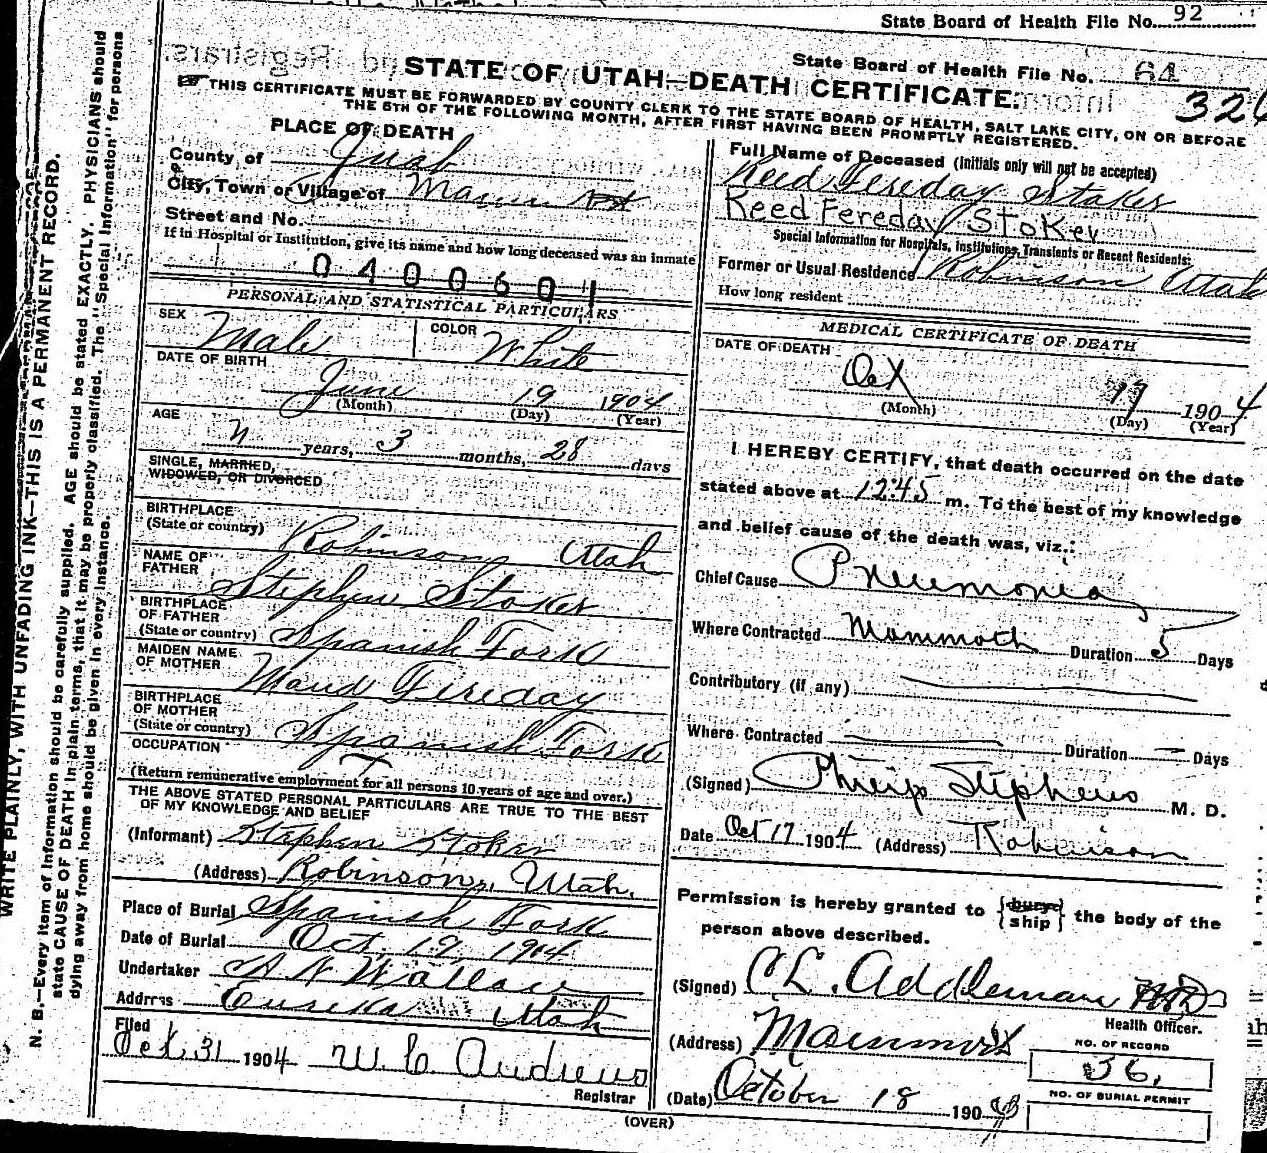 State Board of Health File No. 92
State Board of Health File No. 64
326
STATE OF UTAH—DEATH CERTIFICATE.
THIS CERTIFICATE MUST BE FORWARDED BY COUNTY CLERK TO THE STATE BOARD OF HEALTH, SALT LAKE CITY, ON OR BEFORE
THE 5TH OF THE FOLLOWING MONTH, AFTER FIRST HAVING BEEN PROMPTLY REGISTERED.
PLACE OF DEATH
County of Juab
City, Town or Village of
Street and No.
If in Hospital or Institution, give its name and how long deceased was an inmate
0400601
PERSONAL AND STATISTICAL PARTICULARS
SEX Male COLOR White
DATE OF BIRTH
June 19 1904
(Month) (Day) (Year)
AGE
years, 3 months, 28 days
SINGLE, MARRIED,
WIDOWED, OR DIVORCED
BIRTHPLACE
(State or country) Robinson Utah
NAME OF
FATHER Stephen Stoker
BIRTHPLACE
OF FATHER
(State or country) Spanish Fork
MAIDEN NAME
OF MOTHER Maud Fereday
BIRTHPLACE
OF MOTHER
(State or country) Spanish Fork
OCCUPATION
(Return remunerative employment for all persons 10 years of age and over.)
THE ABOVE STATED PERSONAL PARTICULARS ARE TRUE TO THE BEST
OF MY KNOWLEDGE AND BELIEF
(Informant) Stephen Stoker
(Address) Robinson, Utah.
Place of Burial Spanish Fork
Date of Burial Oct. 19, 1904
Undertaker Wallace
Address Eureka Utah
Filed
Oct. 31 1904 W. C. Andrews
Registrar
Full Name of Deceased (Initials only will not be accepted)
Reed Fereday Stoker
Reed Fereday Stoker
Special Information for Hospitals, Institutions, Transients or Recent Residents:
Former or Usual Residence Robinson Utah
How long resident
MEDICAL CERTIFICATE OF DEATH
DATE OF DEATH
Oct 17 1904
(Month) (Day) (Year)
I HEREBY CERTIFY, that death occurred on the date
stated above at 12:45 m. To the best of my knowledge
and belief cause of the death was, viz.:
Chief Cause Pneumonia
Where Contracted Mammoth Duration 5 Days
Contributory (if any)
Where Contracted Duration — Days
(Signed) Philip Stephens M. D.
Date Oct 17 1904 (Address) Robinson
Permission is hereby granted to {burye ship} the body of the
person above described.
(Signed) C L. Addleman MD
Health Officer.
(Address) Mammoth
NO. OF RECORD
36,
(Date) October 18 190
NO. OF BURIAL PERMIT
(OVER)
WRITE PLAINLY, WITH UNFADING INK—THIS IS A PERMANENT RECORD.
N. B.—Every item of information should be carefully supplied. AGE should be stated EXACTLY. PHYSICIANS should
state CAUSE OF DEATH in plain terms, that it may be properly classified. The "Special Information" for persons
dying away from home should be given in every instance.